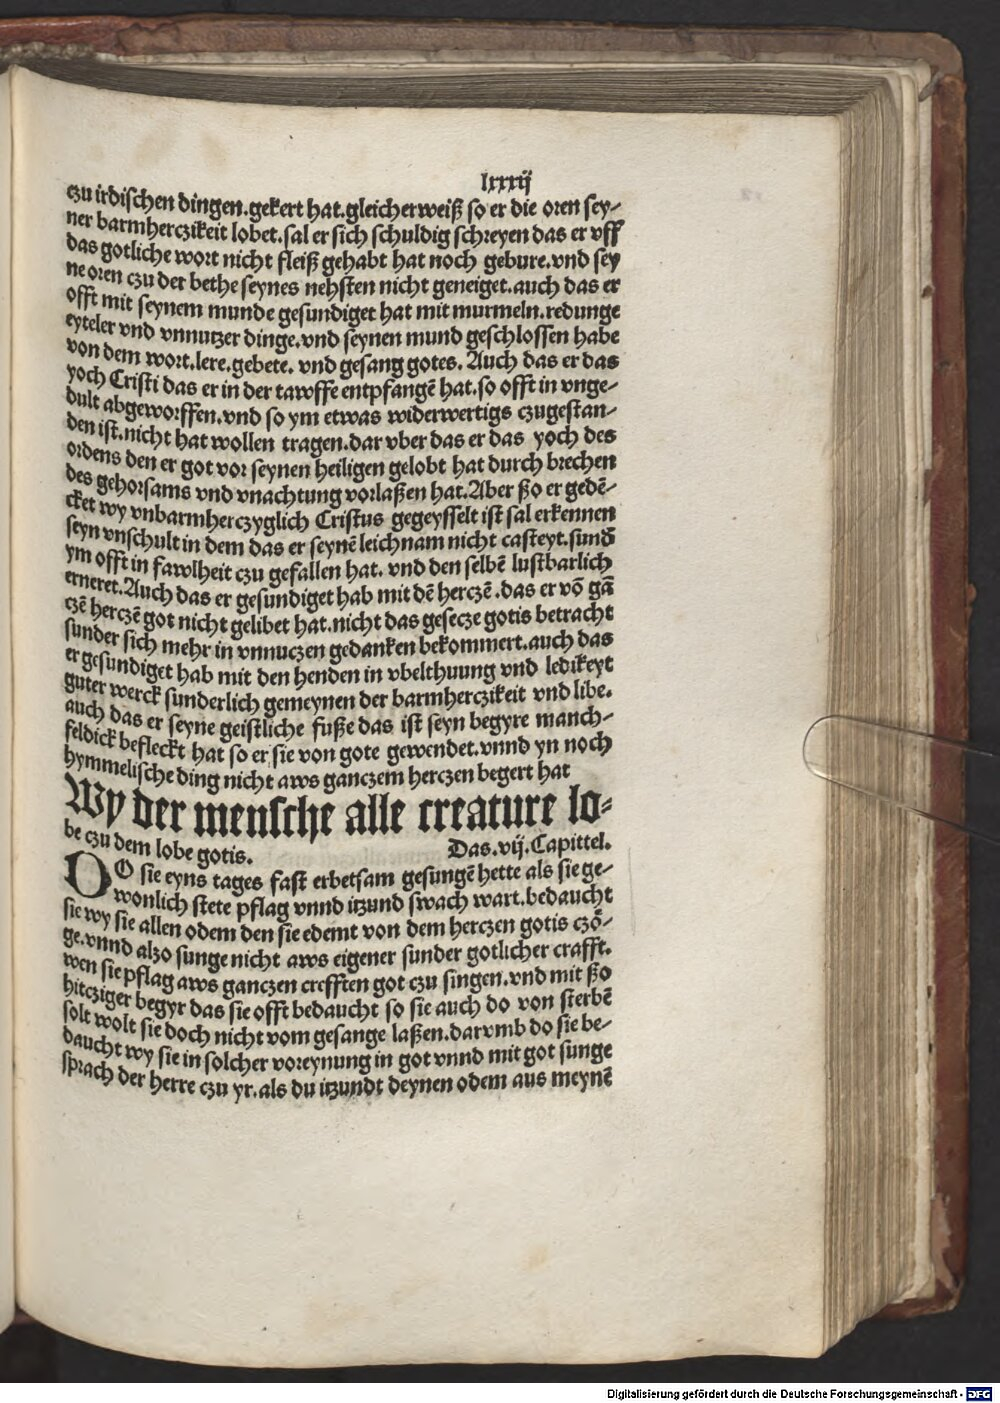 lxxxij
czu irdischen dingen.gekert hat.gleicherweiß so er die oren sey-
ner barmherczikeit lobet.sal er sich schuldig schreyen das er vff
das gotliche wort nicht fleiß gehabt hat noch gebure.vnd sey
ne oren czu der bethe seynes nehsten nicht geneiget.auch das er
offt mit seynem munde gesundiget hat mit murmeln.redunge
eyteler vnd vnnutzer dinge.vnd seynen mund geschlossen habe
von dem wort.lere.gebete. vnd gesang gotes. Auch das er das
yoch Cristi das er in der tawffe entpfangē hat.so offt in vnge-
dult abgeworffen.vnd so ym etwas widerwertigs czugestan-
den ist.nicht hat wollen tragen.dar vber das er das yoch des
ordens den er got vor seynen heiligen gelobt hat durch brechen
des gehorsams vnd vnachtung vorlaßen hat.Aber ßo er gedē-
cket wy vnbarmherczyglich Cristus gegeysselt ist sal erkennen
seyn vnschult in dem das er seynē leichnam nicht casteyt.sund̄
ym offt in fawlheit czu gefallen hat. vnd den selbē lustbarlich
erneret.Auch das er gesundiget hab mit dē herczē .das er vō gā
czē herczē got nicht gelibet hat.nicht das gesecze gotis betracht
sunder sich mehr in vnnuczen gedanken bekommert.auch das
er gesundiget hab mit den henden in vbelthuung vnd ledikeyt
guter werck sunderlich gemeynen der barmherczikeit vnd libe.
auch das er seyne geistliche fuße das ist seyn begyre manch-
feldick befleckt hat so er sie von gote gewendet.vnnd yn noch
hymmelische ding nicht aws ganczem herczen begert hat
Wy der mensche alle creature lo-
be czu dem lobe gotis. Das.vij.Capittel.
DO sie eyns tages fast erbetsam gesungē hette als sie ge-
wonlich stete pflag vnnd itzund swach wart.bedaucht
sie wy sie allen odem den sie edemt von dem herczen gotis czö-
ge.vnnd alzo sunge nicht aws eigener sunder gotlicher crafft.
wen sie pflag aws ganczen crefften got czu singen.vnd mit ßo
hitcziger begyr das sie offt bedaucht so sie auch do von sterbē
solt wolt sie doch nicht vom gesange laßen.darvmb do sie be-
daucht wy sie in solcher voreynung in got vnnd mit got sunge
sprach der herre czu yr.als du itzundt deynen odem aus meynē
Digitalisierung gefördert durch die Deutsche Forschungsgemeinschaft - DFG